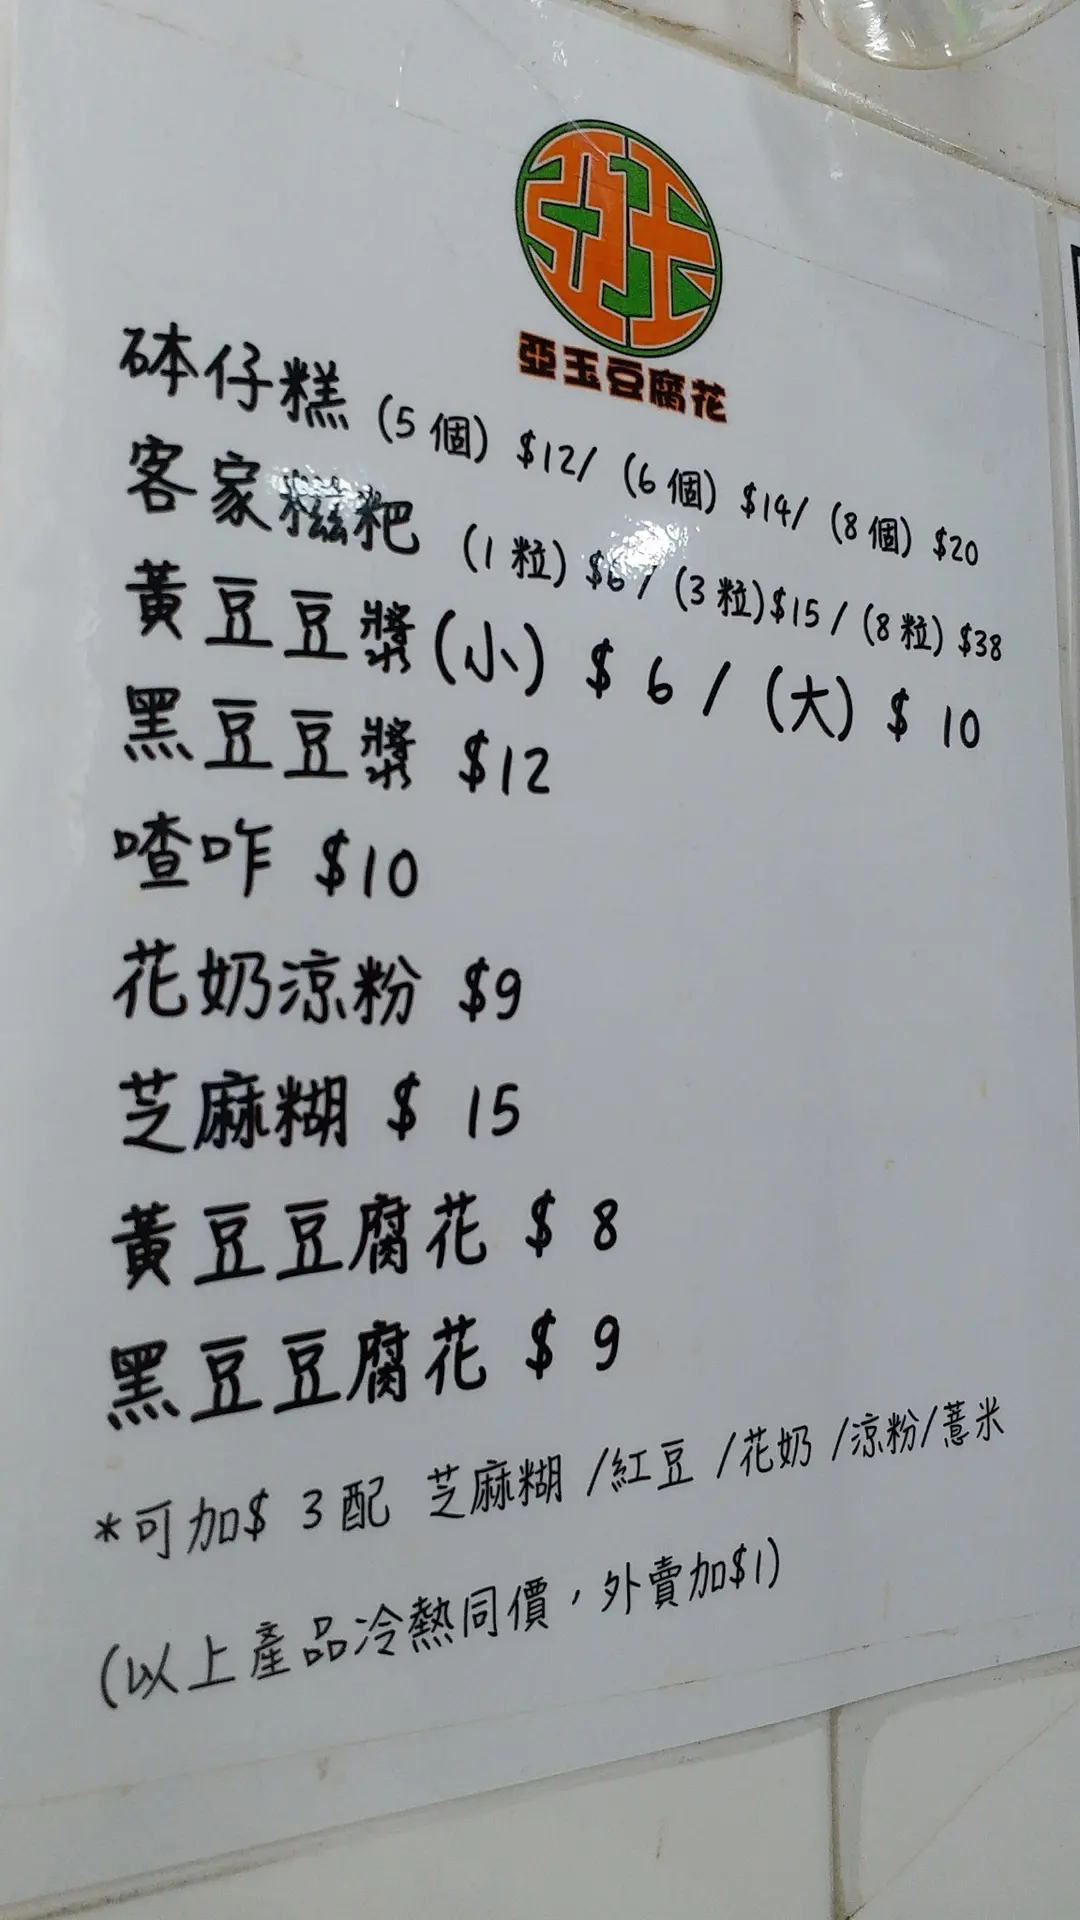 亞玉
亞玉豆腐花
砵仔糕 (5個) $12/ (6個) $14/ (8個) $20
客家糍粑 (1粒) $6 / (3粒) $15 / (8粒) $38
黃豆豆漿(小) $ 6 / (大) $ 10
黑豆豆漿 $12
喳咋 $10
花奶涼粉 $9
芝麻糊 $ 15
黃豆豆腐花 $ 8
黑豆豆腐花 $ 9
*可加$ 3配 芝麻糊 /紅豆 /花奶 /涼粉/薏米
(以上產品冷熱同價，外賣加$1)